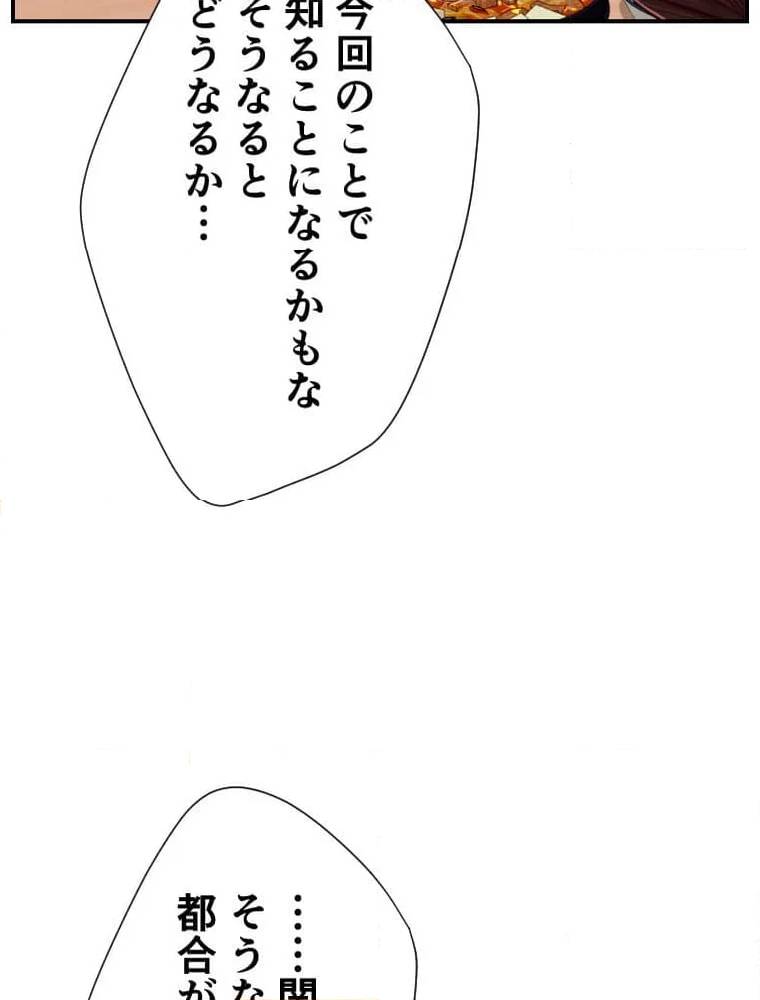 今回のことで
知ることになるかもな
そうなると
どうなるか…
……関
そうな
都合が